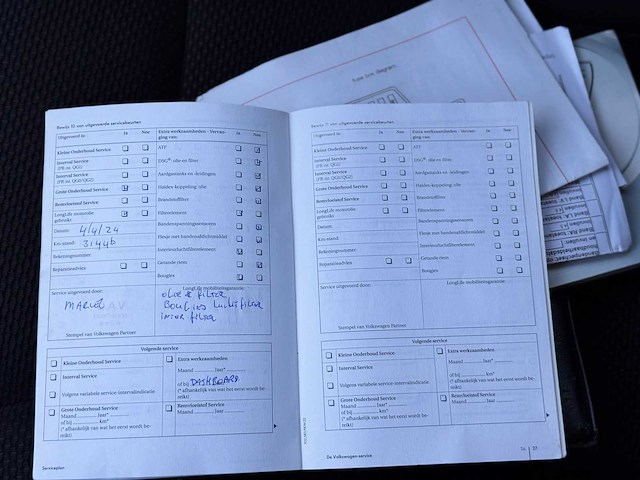 Bewijs 10 van uitgevoerde servicebeurten
Uitgevoerd is:
Ja
Nee
Kleine Onderhoud Service
Interval Service
(PR nr. QG1)
Interval Service
Grote Onderhoud Service
Remvloeistof Service
LongLife motorolie
gebruikt
Datum: 4/4/24
Km-stand:
Rekeningnummer:
Reparatieadvies
Extra werkzaamheden - Vervan-
ging van:
Ja
Nee
ATF
DSG® olie en filter
Aardgastanks en -leidingen
Haldex-koppeling: olie
Brandstoffilter
Filterelement
Bandenspanningssensoren
Flesje met bandenafdichtmiddel
Interieurluchtfilterelement
Getande riem
Bougies
Service uitgevoerd door:
MARCEL
Stempel van Volkswagen Partner
LongLife mobiliteitsgarantie:
OLIE & FILTER
BOUGIES LUCHTFILTER
INTER FILTER
Volgende service
Kleine Onderhoud Service
Interval Service
Volgens variabele service-intervalindicatie
Grote Onderhoud Service
Maand ............ Jaar*
of bij ............ km*
(* afhankelijk van wat het eerst wordt be-
reikt)
Extra werkzaamheden
Maand ............ Jaar*
of bij DASHBOARD
(* afhankelijk van wat het eerst wordt be-
reikt)
Remvloeistof Service
Maand ............ Jaar
Serviceplan
Bewijs 11 van uitgevoerde servicebeurten
Uitgevoerd is:
Ja
Nee
Kleine Onderhoud Service
Interval Service
(PR nr. QG1)
Interval Service
Grote Onderhoud Service
Remvloeistof Service
LongLife motorolie
gebruikt
Datum:
Km-stand:
Rekeningnummer:
Reparatieadvies
Extra werkzaamheden - Vervan-
ging van:
Ja
Nee
ATF
DSG® olie en filter
Aardgastanks en -leidingen
Haldex-koppeling: olie
Brandstoffilter
Filterelement
Bandenspanningssensoren
Flesje met bandenafdichtmiddel
Interieurluchtfilterelement
Getande riem
Bougies
Service uitgevoerd door:
Stempel van Volkswagen Partner
LongLife mobiliteitsgarantie:
Volgende service
Kleine Onderhoud Service
Interval Service
Volgens variabele service-intervalindicatie
Grote Onderhoud Service
Maand ............ Jaar*
of bij ............ km*
(* afhankelijk van wat het eerst wordt be-
reikt)
Extra werkzaamheden
Maand ............ Jaar*
of bij ............ km*
(* afhankelijk van wat het eerst wordt be-
reikt)
Remvloeistof Service
Maand ............ Jaar
De Volkswagen-service